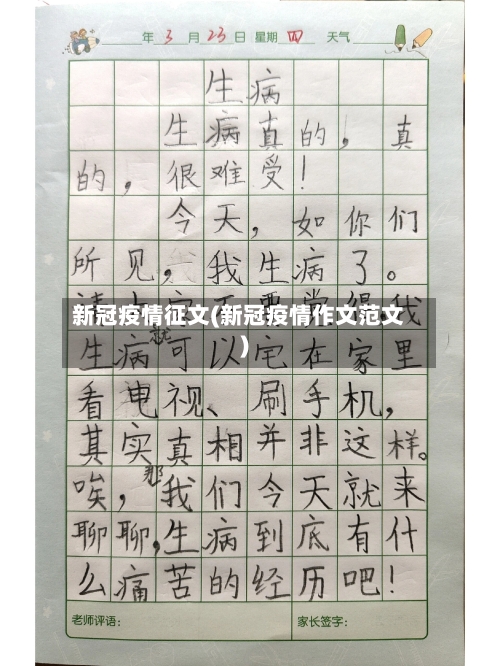 年3月23日 星期四 天气
生病
生病真的，真
的，很难受！
今天，如你们
所见，我生病了。
新冠疫情征文(新冠疫情作文范文
)
就
生病可以宅在家里
看电视、刷手机，
其实真相并非这样。
那
唉，我们今天就来
聊聊，生病到底有什
么痛苦的经历吧！
老师评语： 家长签字：